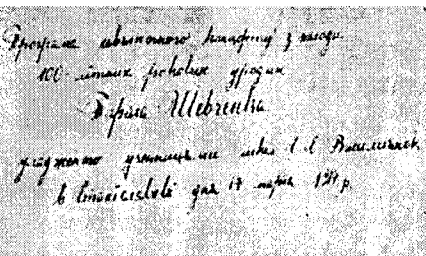 Програма шкільного концерту з нагоди
100-літних роковин уродин
Тараса Шевченка
уладженого ученицями шкіл С. С. Василіянок
в Станіславові дня 17 марта 1914 р.